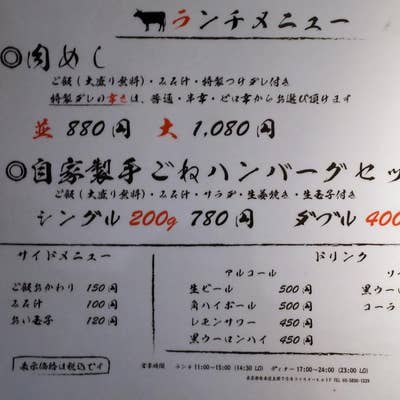 ランチメニュー
◎肉めし
ご飯(大盛り無料)・みそ汁・特製つけダレ付き
特製ダレの辛さは、普通・半辛・ピロ辛からお選び頂けます
並 880円 大 1,080円
◎自家製手ごねハンバーグセッ
ご飯(大盛り無料)・みそ汁・サラダ・生姜焼き・生玉子付き
シングル 200g 780円 ダブル 400
サイドメニュー
ご飯おかわり 150円
みそ汁 100円
おい玉子 120円
ドリンク
アルコール
生ビール 500円
角ハイボール 500円
レモンサワー 450円
黒ウーロンハイ 450円
ソ
黒ウーロ
コーラ
表示価格は税込です
営業時間 ランチ11:00~15:00 (14:30 LO) ディナー17:00~24:00 (23:00 LO)